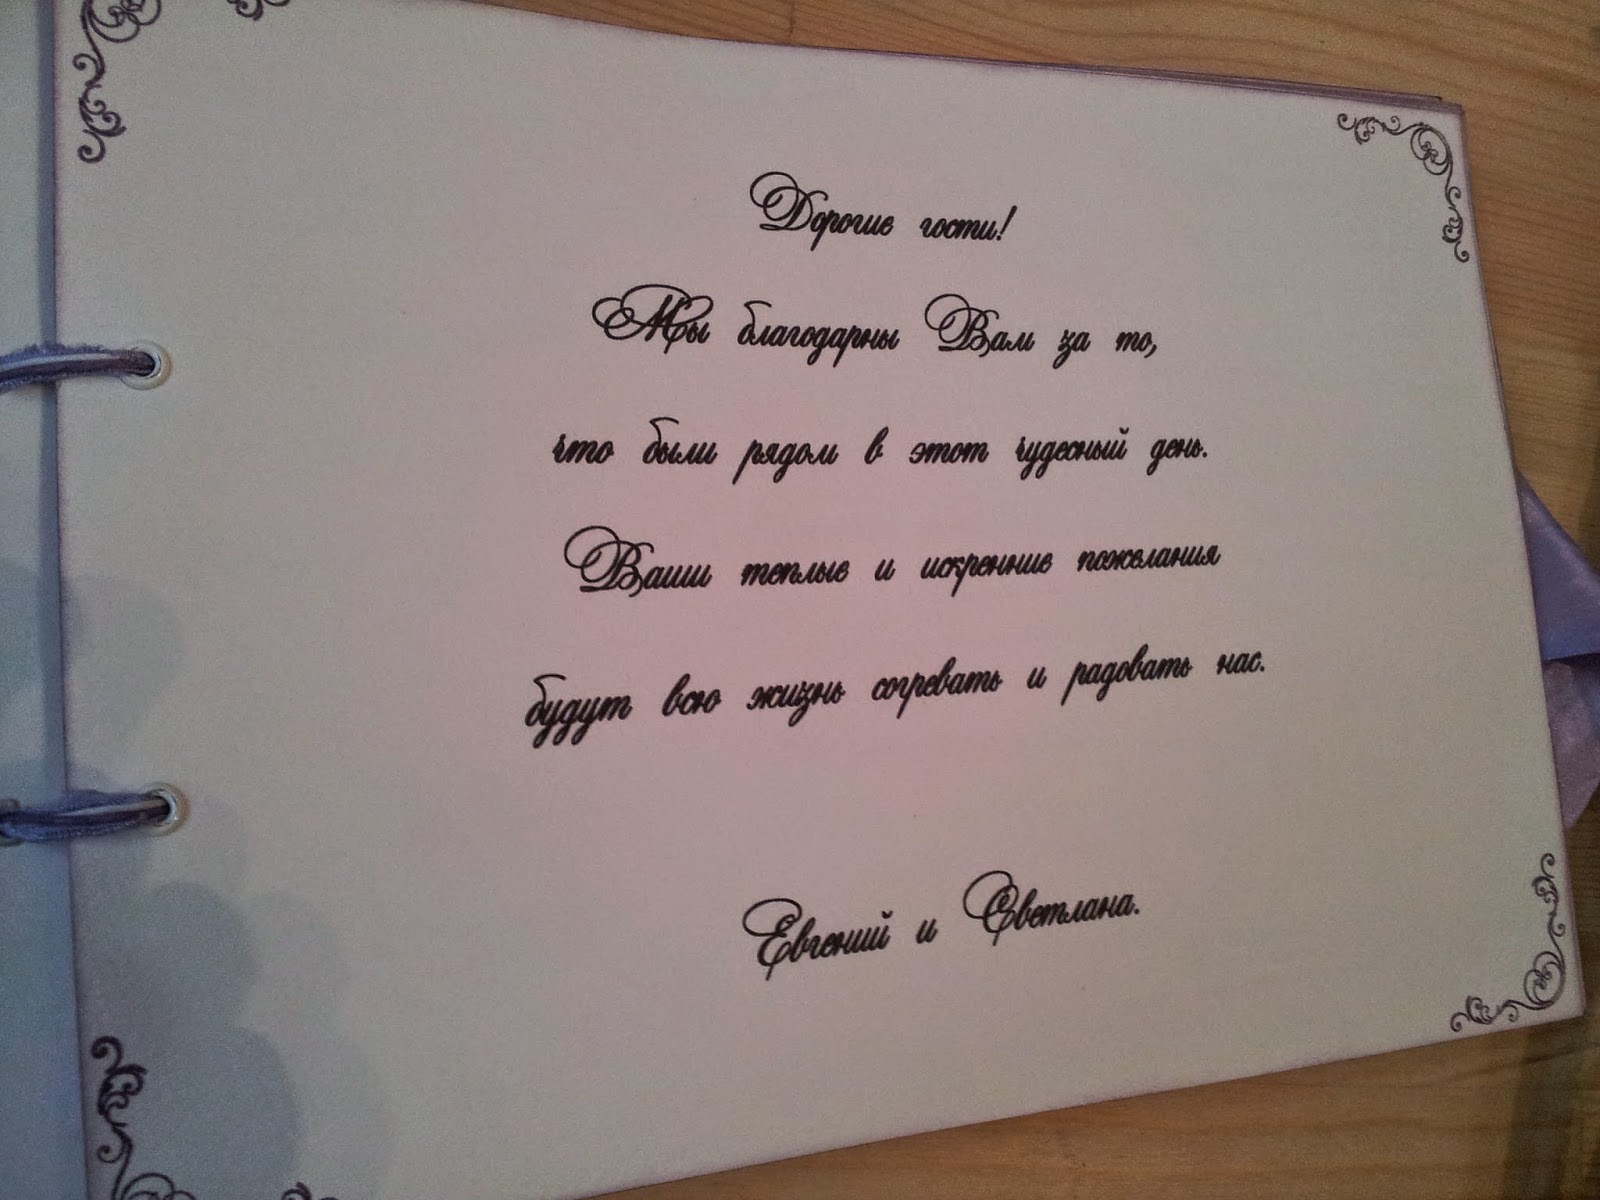 Дорогие гости!
Мы благодарны Вам за то,
что были рядом в этот чудесный день.
Ваши теплые и искренние пожелания
будут всю жизнь согревать и радовать нас.
Евгений и Светлана.